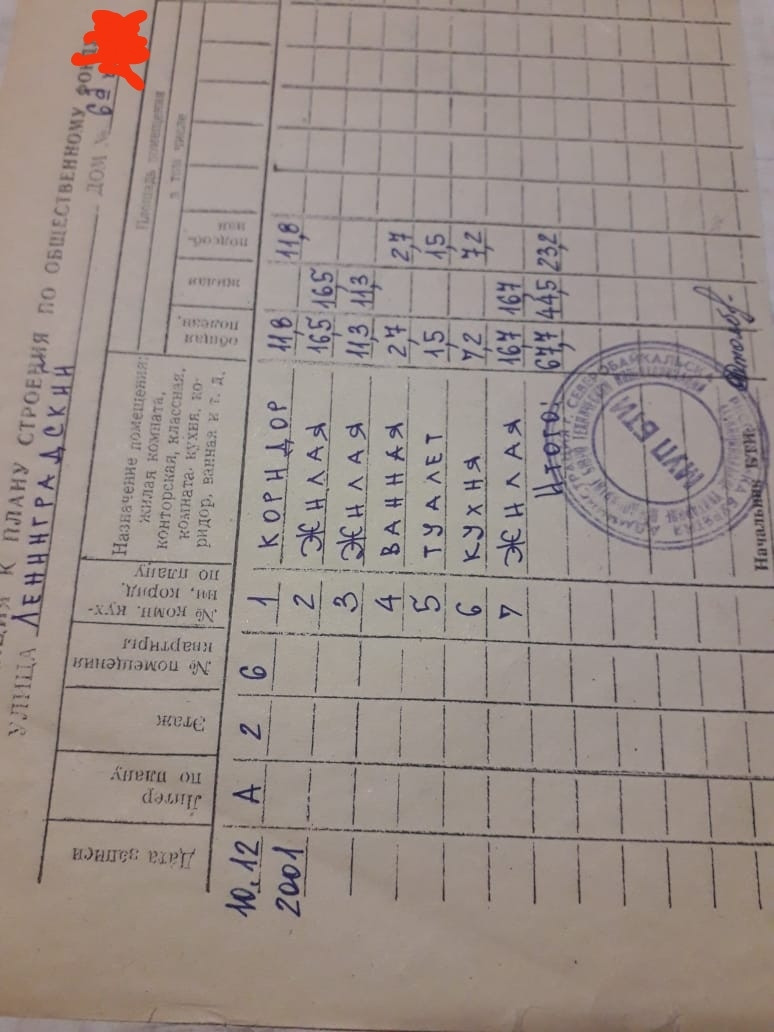 К ПЛАНУ СТРОЕНИЯ ПО ОБЩЕСТВЕННОМУ ФОНДУ
УЛИЦА ЛЕНИНГРАДСКИЙ ДОМ № 6а
Дата записи
Литер по плану
Этаж
№ помещения квартиры
№ комн. кух-
ни, корид.
по плану
Назначение помещения:
жилая комната,
конторская, классная,
комната, кухня, ко-
ридор, ванная и т. д.
Площадь помещения
в том числе
общая полезн.
жилая
подсоб-
ная
10.12 А 2 6 1 КОРИДОР 11,8 11,8
2001 2 ЖИЛАЯ 16,5 16,5
3 ЖИЛАЯ 11,3 11,3
4 ВАННАЯ 2,7 2,7
5 ТУАЛЕТ 1,5 1,5
6 КУХНЯ 7,2 7,2
7 ЖИЛАЯ 16,7 16,7
Итого: 67,7 44,5 23,2
МУП БТИ
Начальник БТИ: